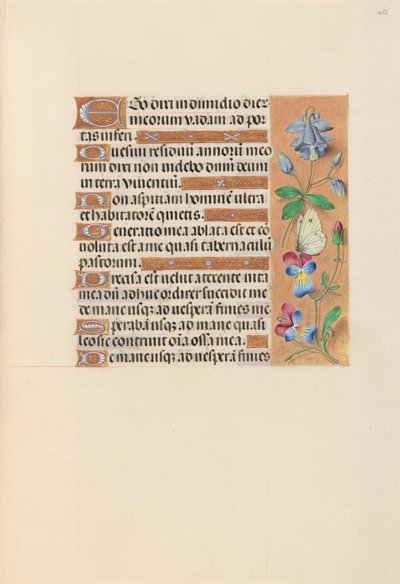 Ego dixi in dimidio dier
meorum vadam ad por
tas inferi.
Quesivi residuū annorū meo
rum dixi non videbo dnm̄ deum
in terra viventiū.
Non aspiciam hominē ultra
et habitatorē quietis.
Generatio mea ablata est et cō
voluta est a me quasi tabernaculū
pastorum.
Precisa est velut a texente vita
mea dū adhuc ordirer succidit me
de mane usqz ad vesperā finies me
Sperabā usqz ad mane quasi
leo sic contrivit oīa ossa mea.
De mane usqz ad vesperā finies